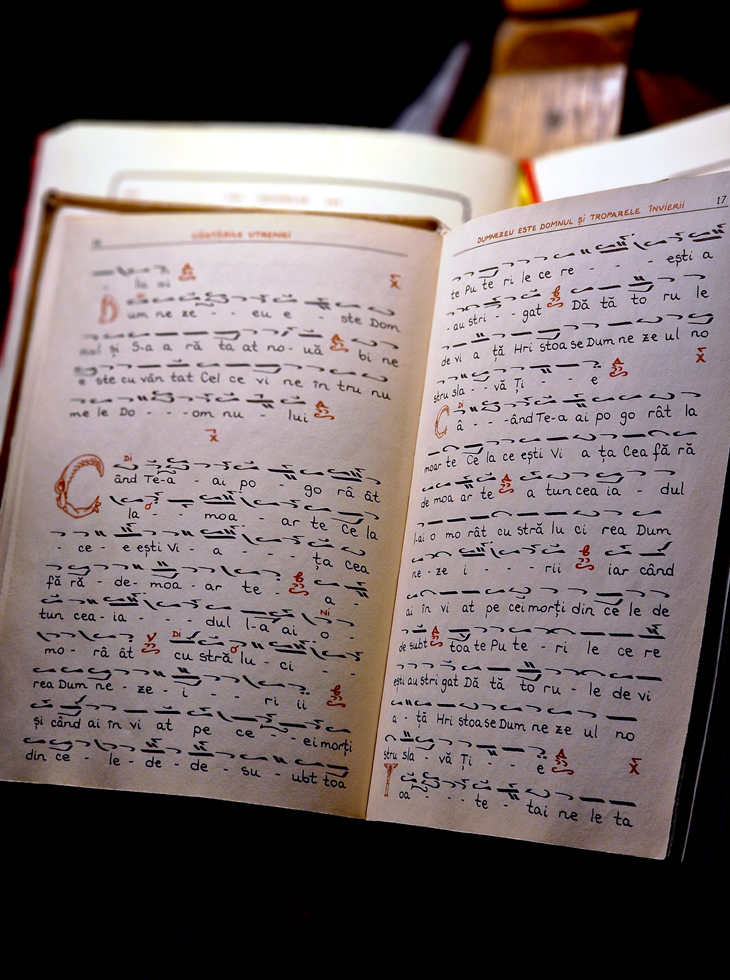 CÂNTĂRILE UTRENIEI
lu ui
D Di
um ne ze - - eu e - ste Dom
nul și S-a a ră ta at no- uă bi ne
e ste cu vân tat Cel ce vi ne în tru nu
me le Do - - - om nu - lui
Di
C ând Te-a - ai po go râ ât
la moa - ar te Ce la
- ce - e ești Vi - a - - - - ța cea
fă ră - de- moa - ar te - a -
Ni
tun cea - ia - - - dul l-a ai o -
Di
mo - râ ât cu stră lu - ci - -
rea Dum ne - ze - i - - ri ii
și când ai în vi at pe ce - - ei morți
din ce - le - de - de - su - ubt toa
DUMNEZEU ESTE DOMNUL ȘI TROPARELE ÎNVIERII 17
te Pu te ri le ce re - - - - ești a
- au stri - - gat Dă tă to ru le
de vi a ță Hri stoa se Dum ne ze ul no
stru sla - - vă Ți - - - e
Di
C â - - - -ând Te-a ai po go rât la
moar te Ce la ce ești Vi a ța Cea fă ră
de moa ar te a tun cea ia - dul
l-ai o mo rât cu stră lu ci rea Dum
ne - ze i - - - - rii iar când
ai în vi at pe cei morți din ce le de
de subt toa te Pu te - ri le ce re
ești au stri gat Dă tă to ru - le de vi
a - ță Hri stoa se Dum ne ze ul no
stru sla - vă Ți - - - e
T oa - - - te - tai ne le ta